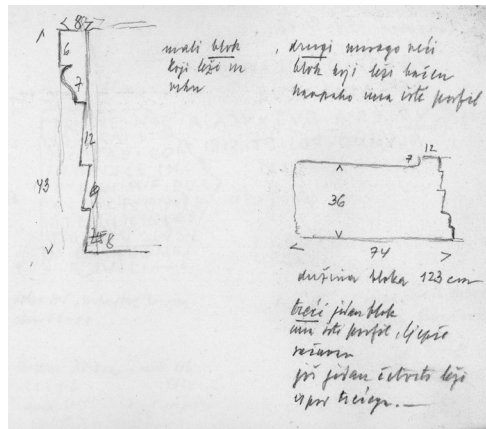 8
6
7
12
43
8
mali blok
koji leži na
vrhu
drugi mnogo veći
blok koji leži bačen
naopako ima isti profil
7 12
36
74
dužina bloka 123 cm
treći jedan blok
ima isti profil, ljepše
još jedan četvrti leži
ispod trećega.—